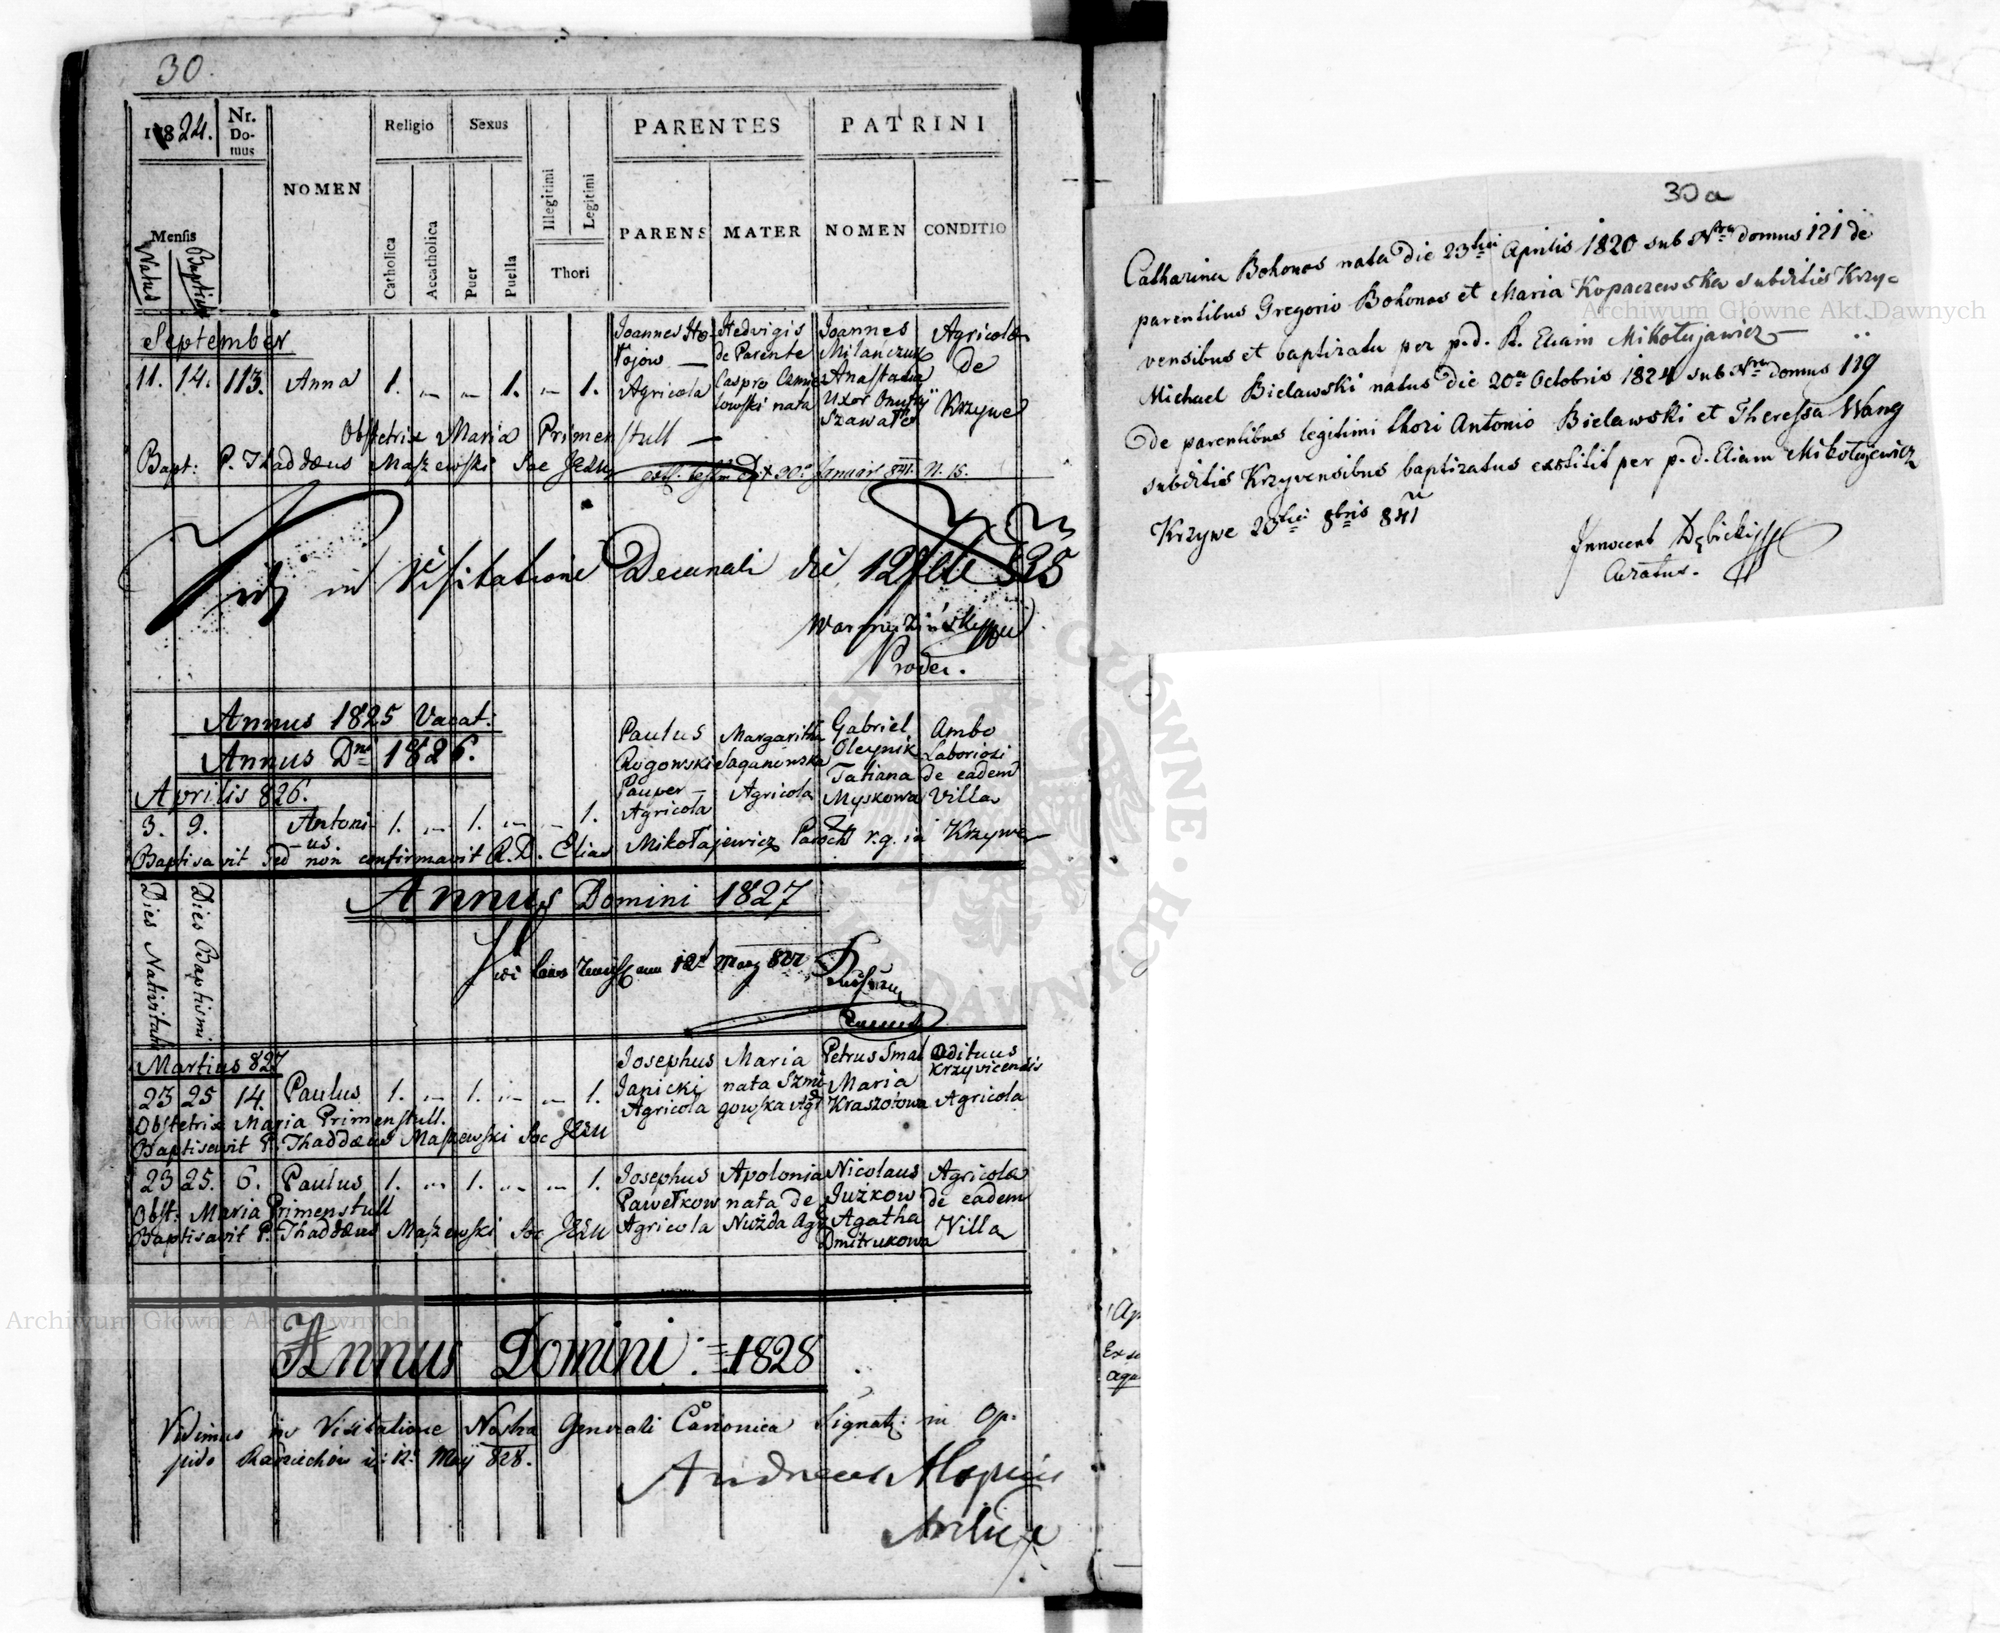 30.
1824.
Nr.
Do-
mus
NOMEN
Religio
Sexus
PARENTES
PATRINI
Mensis
Natus
Baptism
Catholica
Accatholica
Puer
Puella
Illegitimi
Legitimi
Thori
PARENS
MATER
NOMEN
CONDITIO
September
11. 14. 113. Anna 1. — — 1. — 1.
Joannes
Agricola
Hedvigis
de Parente
nata
Joannes
Milanczuk
Anastasia
Uxor
Agricola
de
Krzywe
Obstetrix Maria Primenstull —
Bapt: P. Thaddæus Maszewski Soc Jezu
30. Januarij 841. N. 15.
in Visitatione Decanali die
Proder.
Annus 1825 Vacat.
Annus Dni 1826.
Aprilis 826.
3. 9. Antoni- 1. — 1. — — 1.
us
Paulus
Rogowski
Pauper —
Agricola
Margaritha
Saganowska
Agricola
Gabriel
Oleynik
Tatiana
Myskowa
Ambo
Laboriosi
de eadem
Villa
Baptisavit sed non confirmavit R. D. Elias Mikołajewicz Paroch r. g. in Krzywe
Dies Nativitatis
Dies Baptismi
Annus Domini 1827
Martius 827
23 25 14. Paulus 1. — 1. — — 1.
Josephus
Janicki
Agricola
Maria
nata Szmi-
gowska Agr
Petrus Smal
Maria
Kraszotowa
Ædituus
Krzyvicensis
Agricola
Obstetrix Maria Primenstull.
Baptisavit P. Thaddæus Maszewski Soc Jezu
23 25. 6. Paulus 1. — 1. — — 1.
Josephus
Pawełkow
Agricola
Apolonia
nata de
Nużda Agr
Nicolaus
Juzkow
Agatha
Dmitrukowa
Agricola
de eadem
Villa
Obst: Maria Primenstull
Baptisavit P. Thaddæus Maszewski Soc Jezu
Annus Domini: 1828
Vidimus in Visitatione Nostra Generali Canonica Signat: in Op-
pido 12 Maij 828.
Andreas
30a
Catharina Bohonos nata die 23tia Aprilis 1820 sub Nro domus 121 de
parentibus Gregorio Bohonos et Maria Kopaczewska subditis Krzy-
vensibus et baptizata per p. d. R. Eliam Mikołajewicz —
Michael Bielawski natus die 20a Octobris 1824 sub Nro domus 119
de parentibus legitimi thori Antonio Bielawski et Theressa Wang
subditis Krzyvensibus baptizatus exstitit per p. d. Eliam Mikołajewicz
Krzywe 8bris 841
Innocent Dębicki
Curatus.
Archiwum Główne Akt Dawnych
Archiwum Główne Akt Dawnych